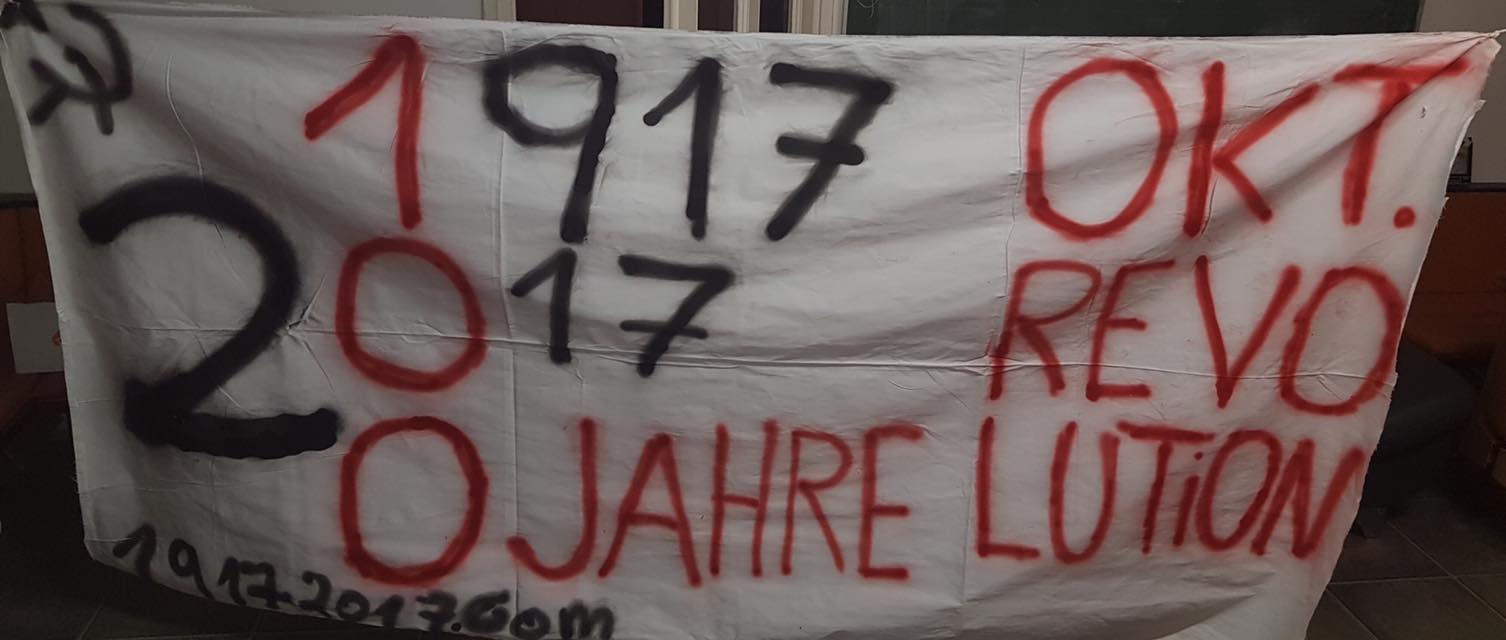 1917 OKT.
2017 REVO
0 JAHRE LUTiON
1917-2017.com